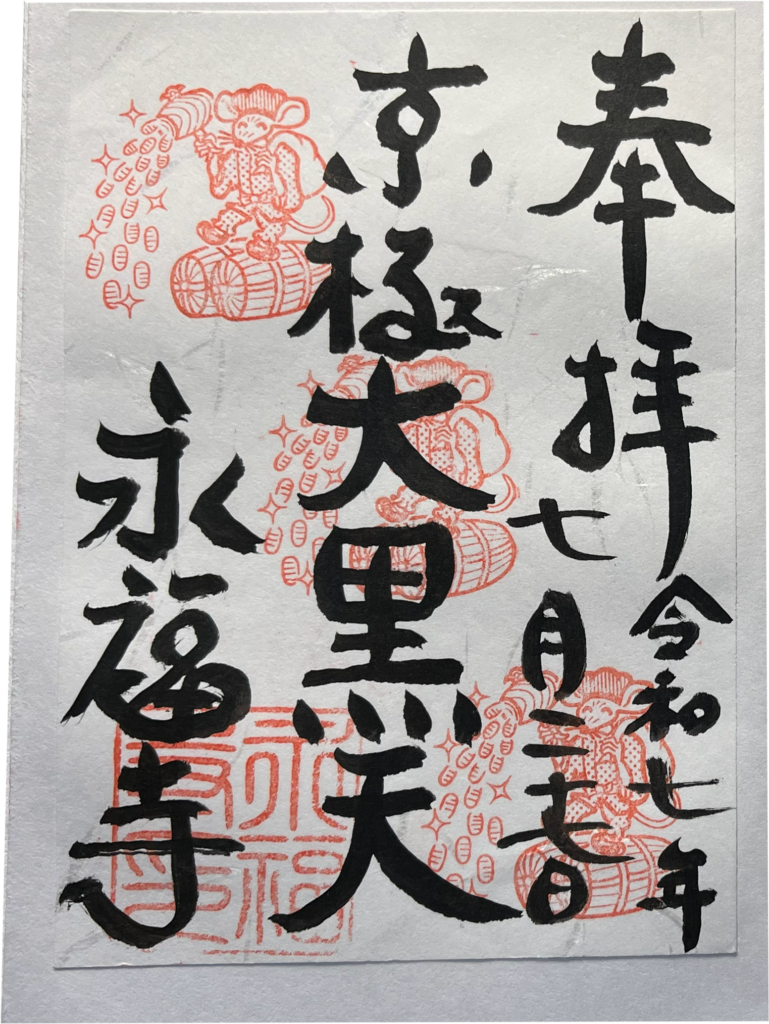 奉拝
令和七年
七月二十七日
京極大黒天
永福寺
永福
寺印